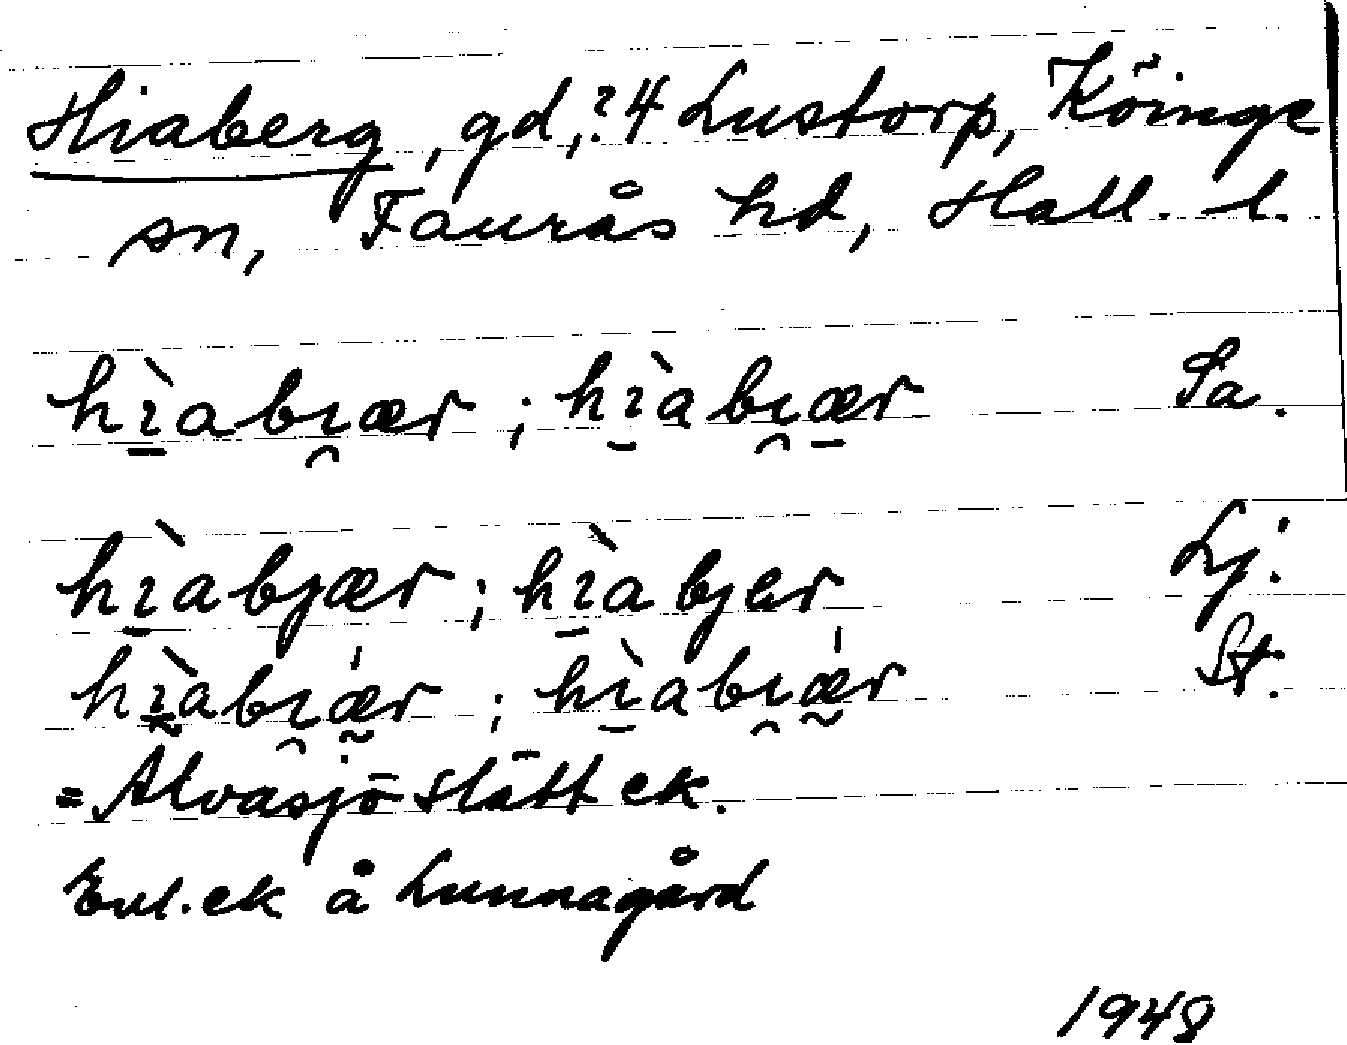 Hiaberg, gd, ? 4 Lustorp, Köinge
sn, Faurås hd, Hall. l.
hı̠̀abı̯ær ; hı̠̀abı̯æ̠r Sa.
hı̠̀abjær ; hı̠̀abjer Lj.
hı̠̀abı̯æ̰̍r ; hı̠̀abı̯æ̰̍r St.
= Älvasjö slätt ek.
Enl. ek å Lunnagård
1948